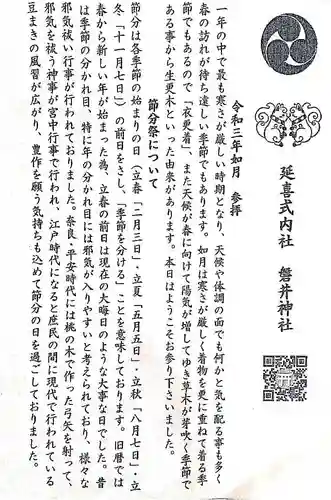 延喜式内社 磐井神社
令和三年如月 参拝
一年の中で最も寒さが厳しい時期となり、天候や体調の面でも何かと気を配る事も多く
春の訪れが待ち遠しい季節でもあります。如月は寒さが厳しく着物を更に重ねて着る季
節でもあるので「衣更着」、また天候が春に向けて陽気が増してゆき草木が芽吹く季節で
ある事から生更木といった由来があります。本日はようこそお参り下さいました。
節分祭について
節分は各季節の始まりの日（立春「二月三日」・立夏「五月五日」・立秋「八月七日」・立
冬「十一月七日」）の前日をさし、「季節を分ける」ことを意味しております。旧暦では
春から新しい年が始まった為、立春の前日は現在の大晦日のような大事な日でした。昔
は季節の分かれ目、特に年の分かれ目には邪気が入りやすいと考えられており、様々な
邪気祓い行事が行われておりました。奈良・平安時代には桃の木で作った弓矢を射って、
邪気を祓う神事が宮中行事で行われ、江戸時代になると庶民の間に現代で行われている
豆まきの風習が広がり、豊作を願う気持ちも込めて節分の日を過ごしておりました。